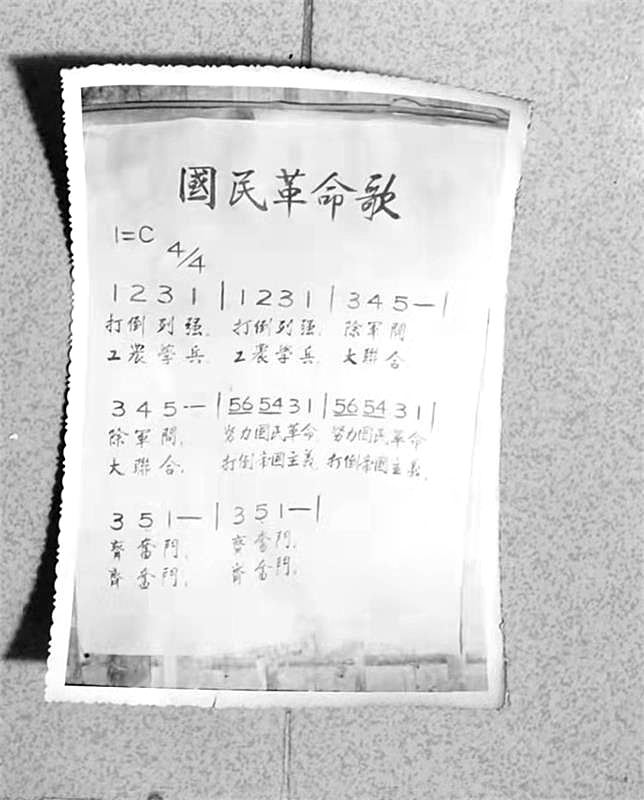 國民革命歌
1=C 4/4
1 2 3 1 | 1 2 3 1 | 3 4 5 — |
打倒列强, 打倒列强, 除軍閥,
工農學兵, 工農學兵, 大聯合
3 4 5 — | 56 54 3 1 | 56 54 3 1 |
除軍閥, 努力國民革命 努力國民革命
大聯合, 打倒帝國主義, 打倒帝國主義,
3 5 1 — | 3 5 1 — |
齊奮鬥, 齊奮鬥,
齊奮鬥, 齊奮鬥,